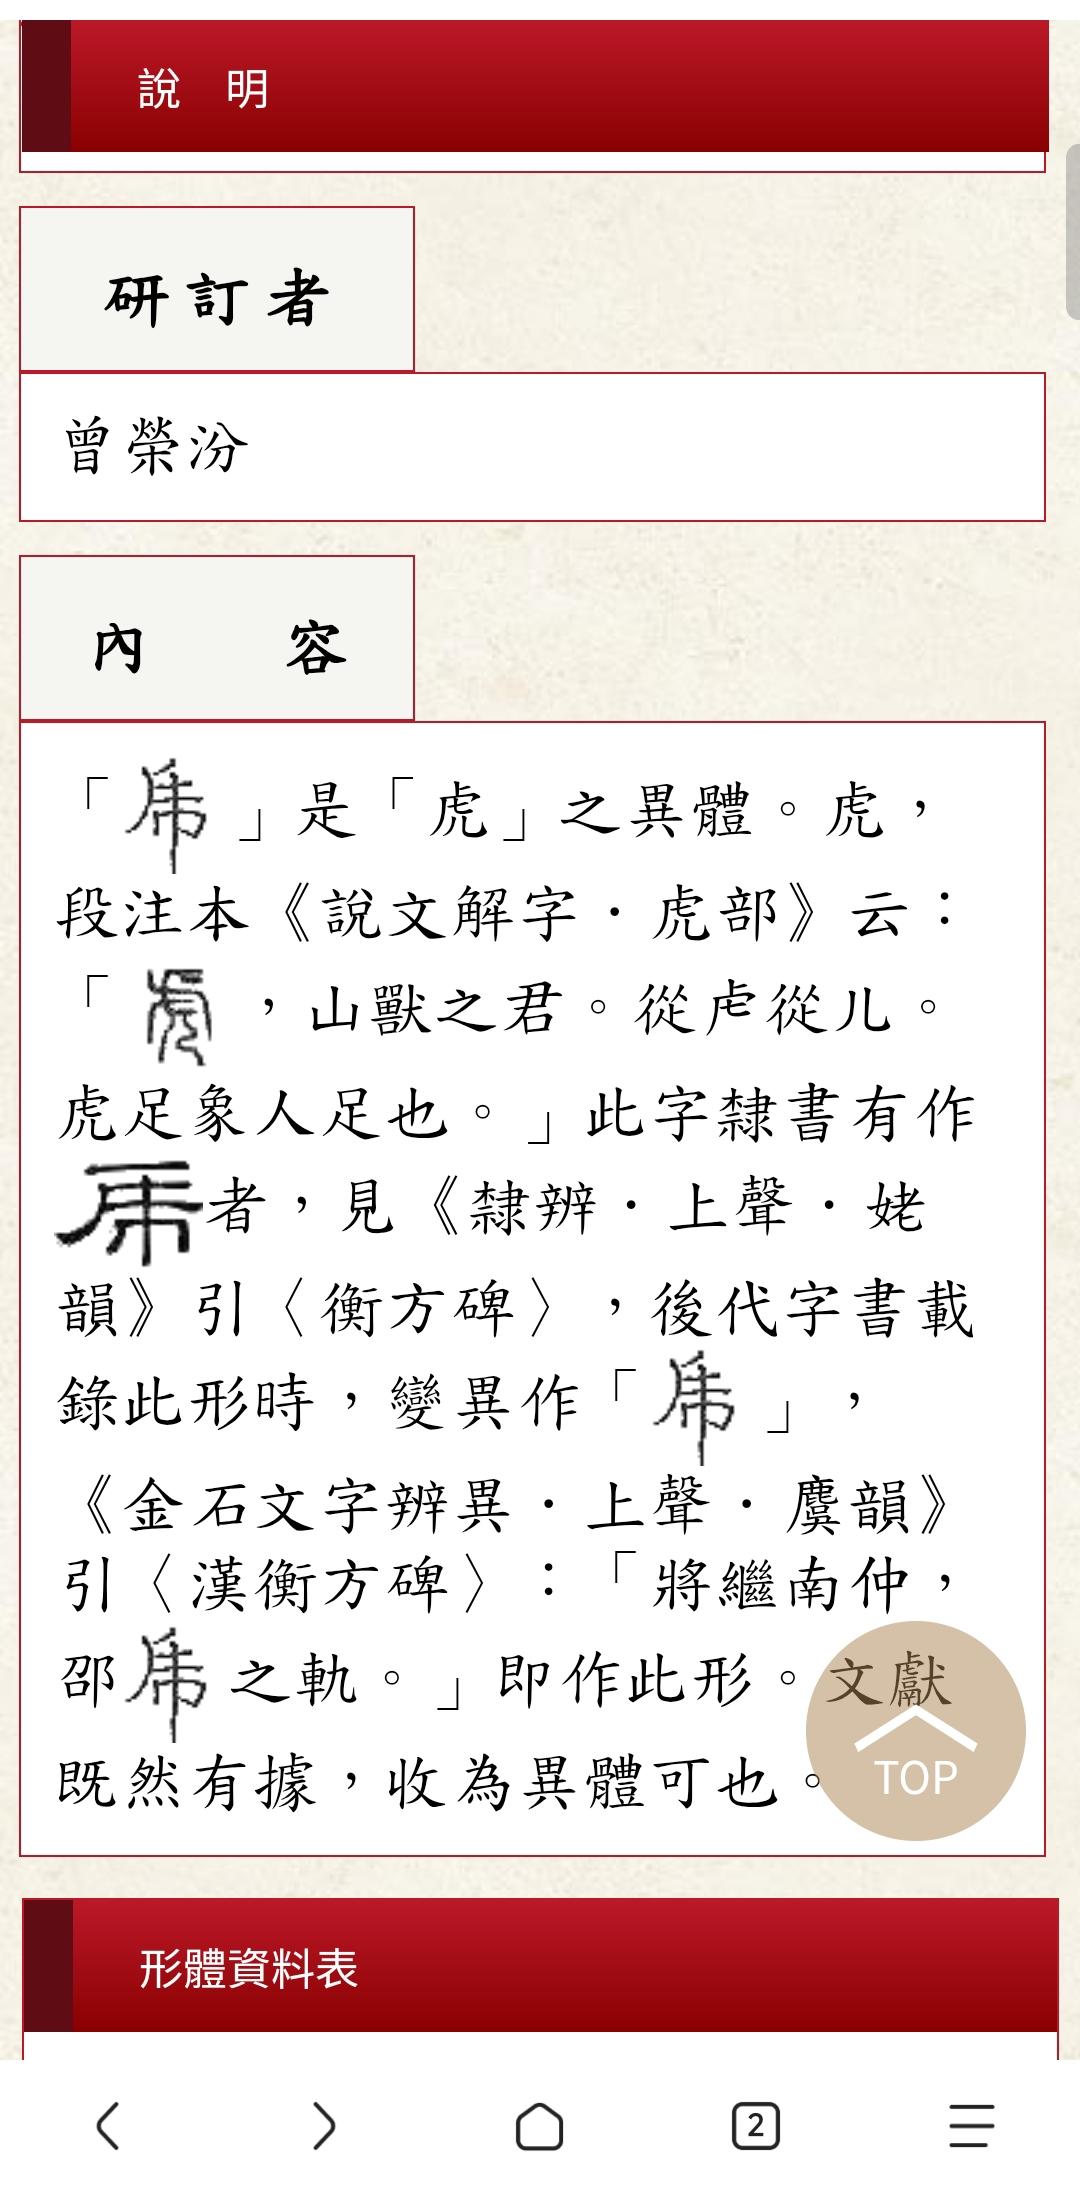 說 明
研訂者
曾榮汾
內 容
「」是「虎」之異體。虎，
段注本《說文解字．虎部》云：
「，山獸之君。從虍從儿。
虎足象人足也。」此字隸書有作
者，見《隸辨．上聲．姥
韻》引〈衡方碑〉，後代字書載
錄此形時，變異作「」，
《金石文字辨異．上聲．麌韻》
引〈漢衡方碑〉：「將繼南仲，
邵之軌。」即作此形。文獻
既然有據，收為異體可也。
TOP
形體資料表
2